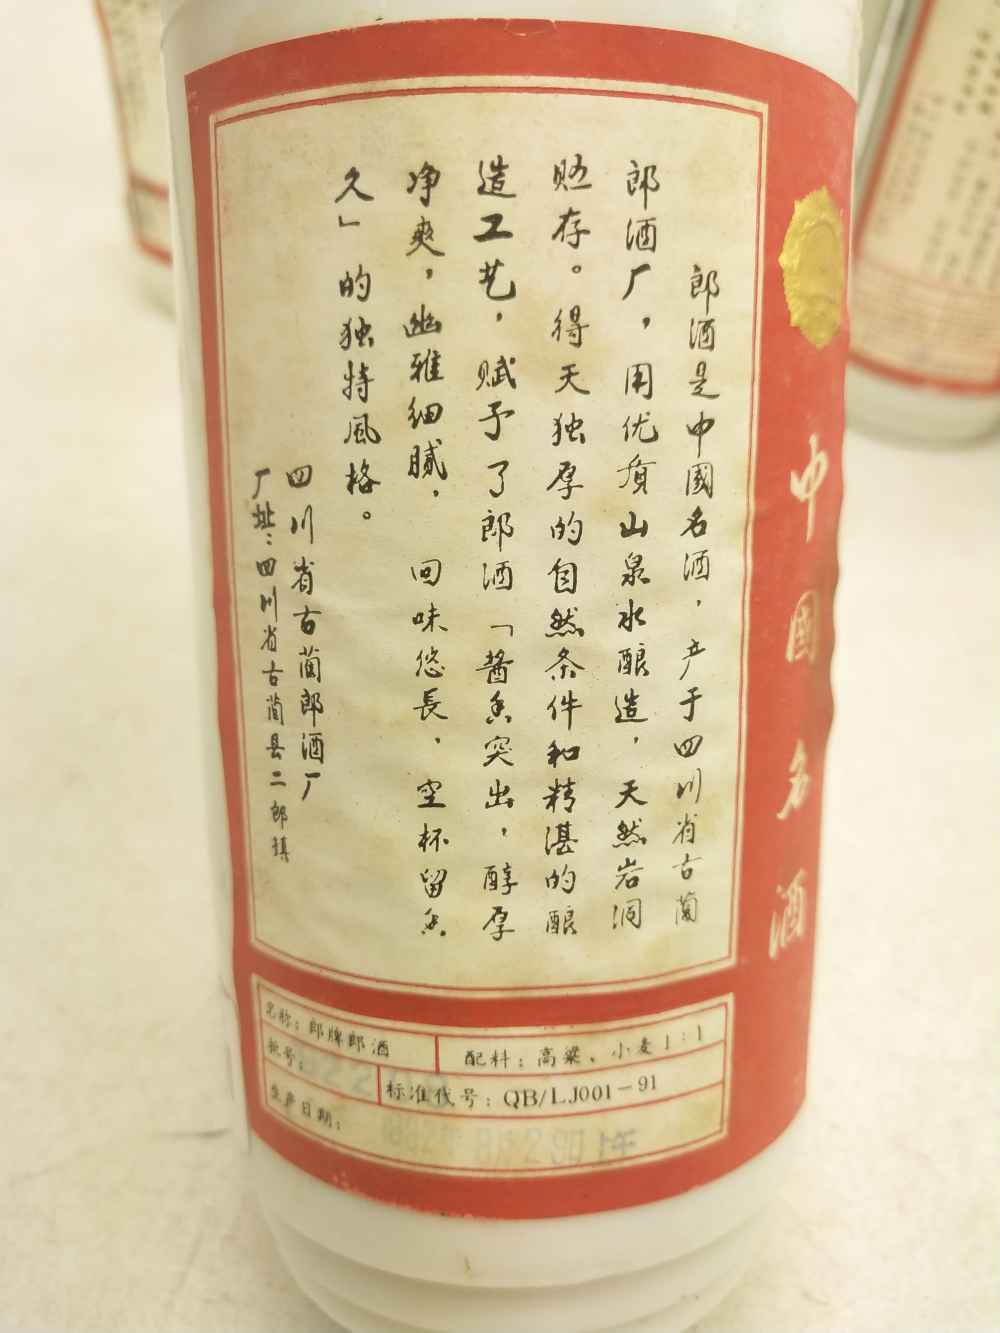 郎酒是中國名酒，产于四川省古蔺
郎酒厂，用优质山泉水酿造，天然岩洞
贮存。得天独厚的自然条件和精湛的酿
造工艺，赋予了郎酒「酱香突出，醇厚
净爽，幽雅细腻，回味悠長，空杯留香
久」的独特風格。
四川省古蔺郎酒厂
厂址：四川省古蔺县二郎镇
中國名酒
名称：郎牌郎酒
配料：高粱、小麦1：1
批号：
标准代号：QB/LJ001－91
生产日期：